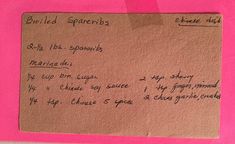 Broiled Spareribs chinese dish
2-½ lbs. spareribs
marinade:
¼ cup brn. sugar 2 tsp. sherry
¼ " Chinese soy sauce 1 tsp ginger, minced
¼ tsp. Chinese 5 spice 2 cloves garlic, crushed